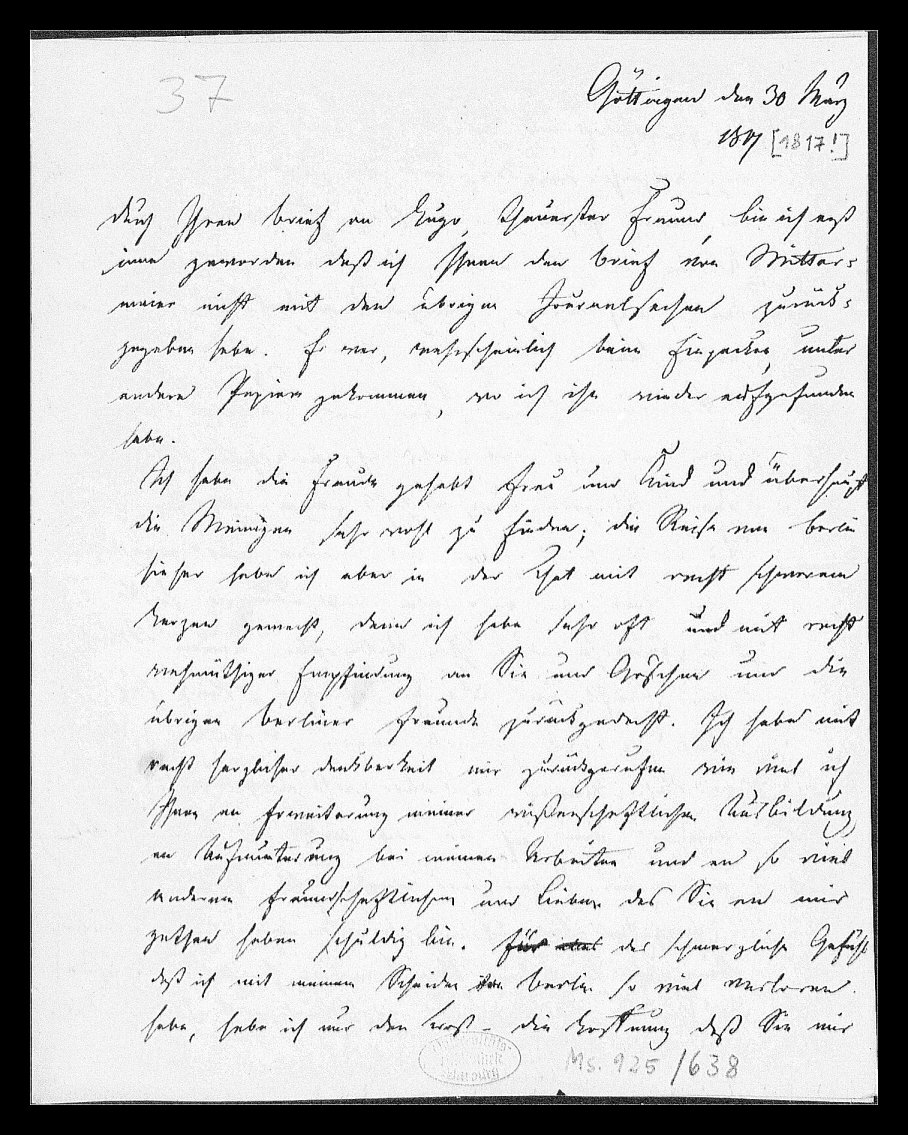 37
Göttingen den 30 März
1817 [1817!]
Durch Ihren Brief an Hugo, theuerster Freund, bin ich erst
inne geworden daß ich Ihnen den Brief von Mitter-
maier nicht mit den übrigen Journalsachen zurück-
gegeben habe. Er war, wahrscheinlich beim Einpacken, unter
andere Papiere gekommen, wo ich ihn wieder aufgefunden
habe.
Ich habe die Freude gehabt Frau und Kind und überhaupt
die Meinigen sehr wohl zu finden; die Reise von Berlin
hieher habe ich aber in der That mit recht schwerem
Herzen gemacht, denn ich habe sehr oft und mit recht
wehmüthiger Empfindung an Sie und Göschen und die
übrigen Berliner Freunde zurückgedacht. Ich habe mit
recht herzlicher Dankbarkeit mir zurückgerufen wie viel ich
Ihnen an Erweiterung meiner wißenschaftlichen Ausbildung,
an Aufmunterung bei meinen Arbeiten und an so viel
anderem freundschaftlichem und Lieben das Sie an mir
gethan haben schuldig bin. Für das schmerzliche Gefühl
daß ich mit meinem Scheiden von Berlin so viel verloren
habe, habe ich nur den Trost - die Hoffnung daß Sie mir
Ms. 925/638